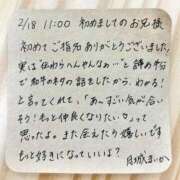 2/18 11:00 初めましてのお兄様
初めて ご指名 ありがとうございました!
実は伝わらへんやんなぁ…と諦め半分
で和牛のネタの話をしたから、わかる!
と言ってくれて、「あ〜すごい気が合い
そう!もっと仲良くなりたい。」って
思ったよ。また会えたら嬉しいです
もっと好きになっていいよ?